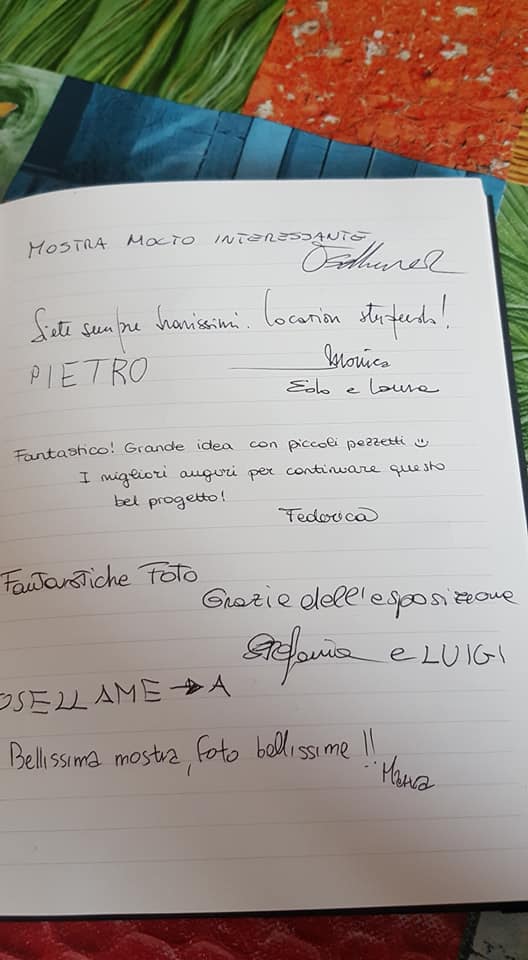 MOSTRA MOLTO INTERESSANTE
Siete sempre bravissimi. Location stupenda!
PIETRO
Monica
Edo e Laura
Fantastico! Grande idea con piccoli pezzetti
I migliori auguri per continuare questo
bel progetto!
Federica
Fantastiche Foto
Grazie dell'esposizione
Stefania e LUIGI
OSELLAME → A
Bellissima mostra, foto bellissime !!